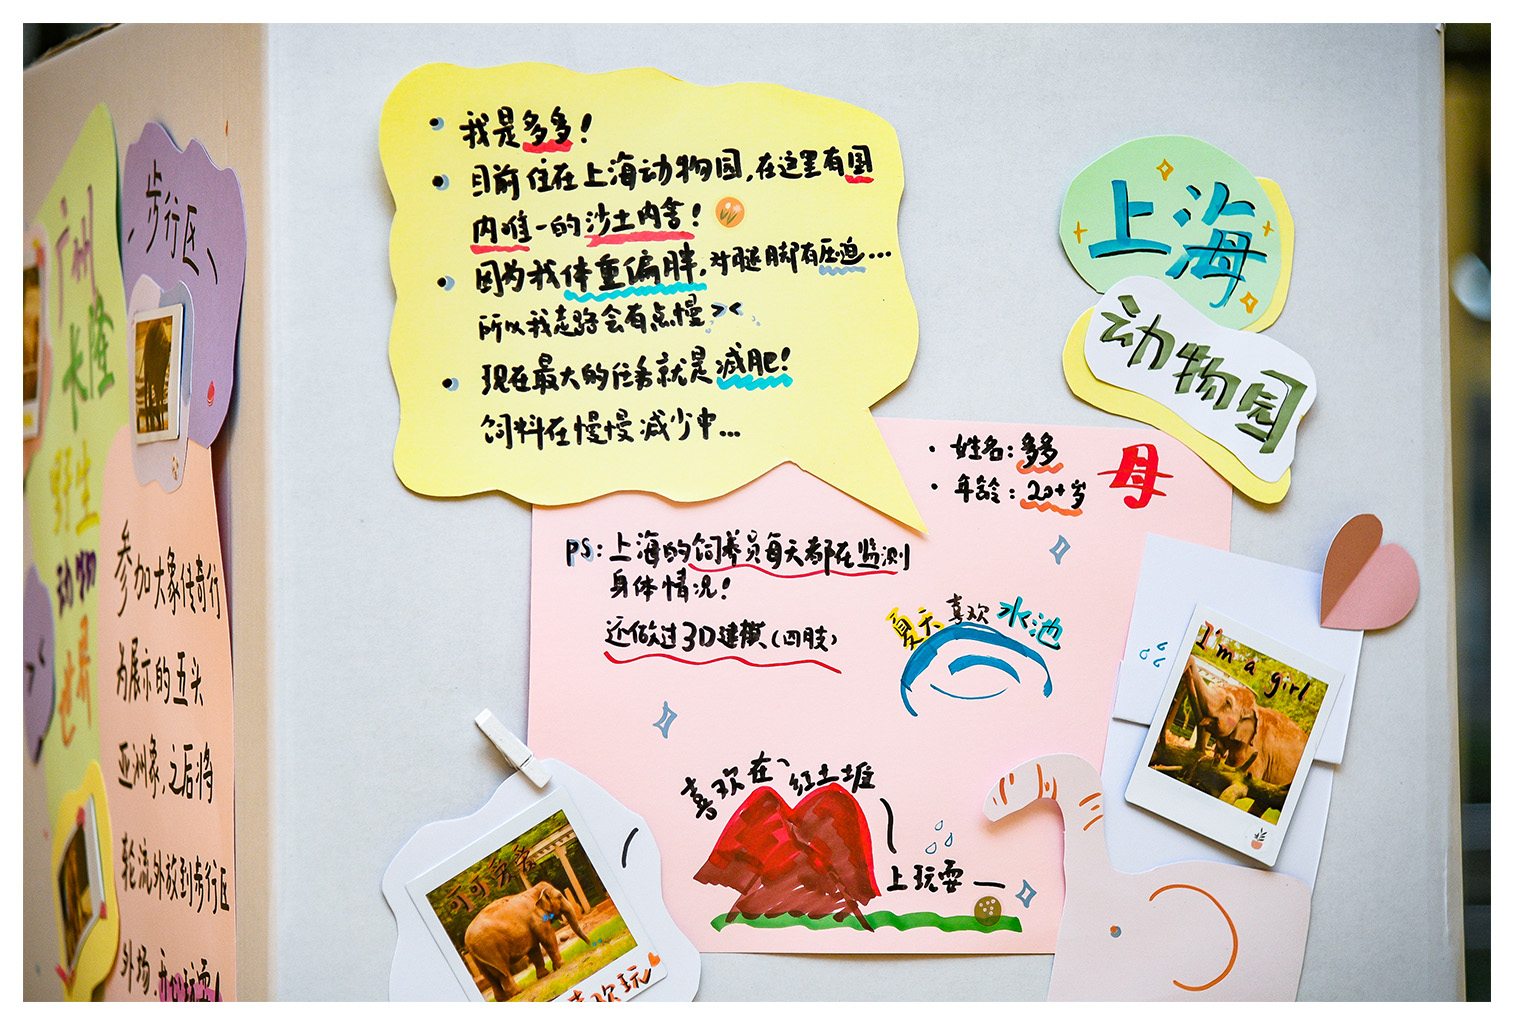 我是多多！
目前住在上海动物园，在这里有国
内唯一的沙土内舍！
因为我体重偏胖，对腿脚有压迫...
所以我走路会有点慢 ><
现在最大的任务就是减肥！
饲料在慢慢减少中...
上海
动物园
姓名：多多
年龄：20+岁
母
PS：上海的饲养员每天都在监测
身体情况！
还做过3D建模（四肢）
夏天喜欢水池
喜欢在红土堆
上玩耍
I'm a girl
可可爱爱
喜欢玩
广州
长隆
野生
动物
世界
步行区
参加大象传奇行
为展示的五头
亚洲象，之后将
轮流外放到步行区
外场
玩耍！